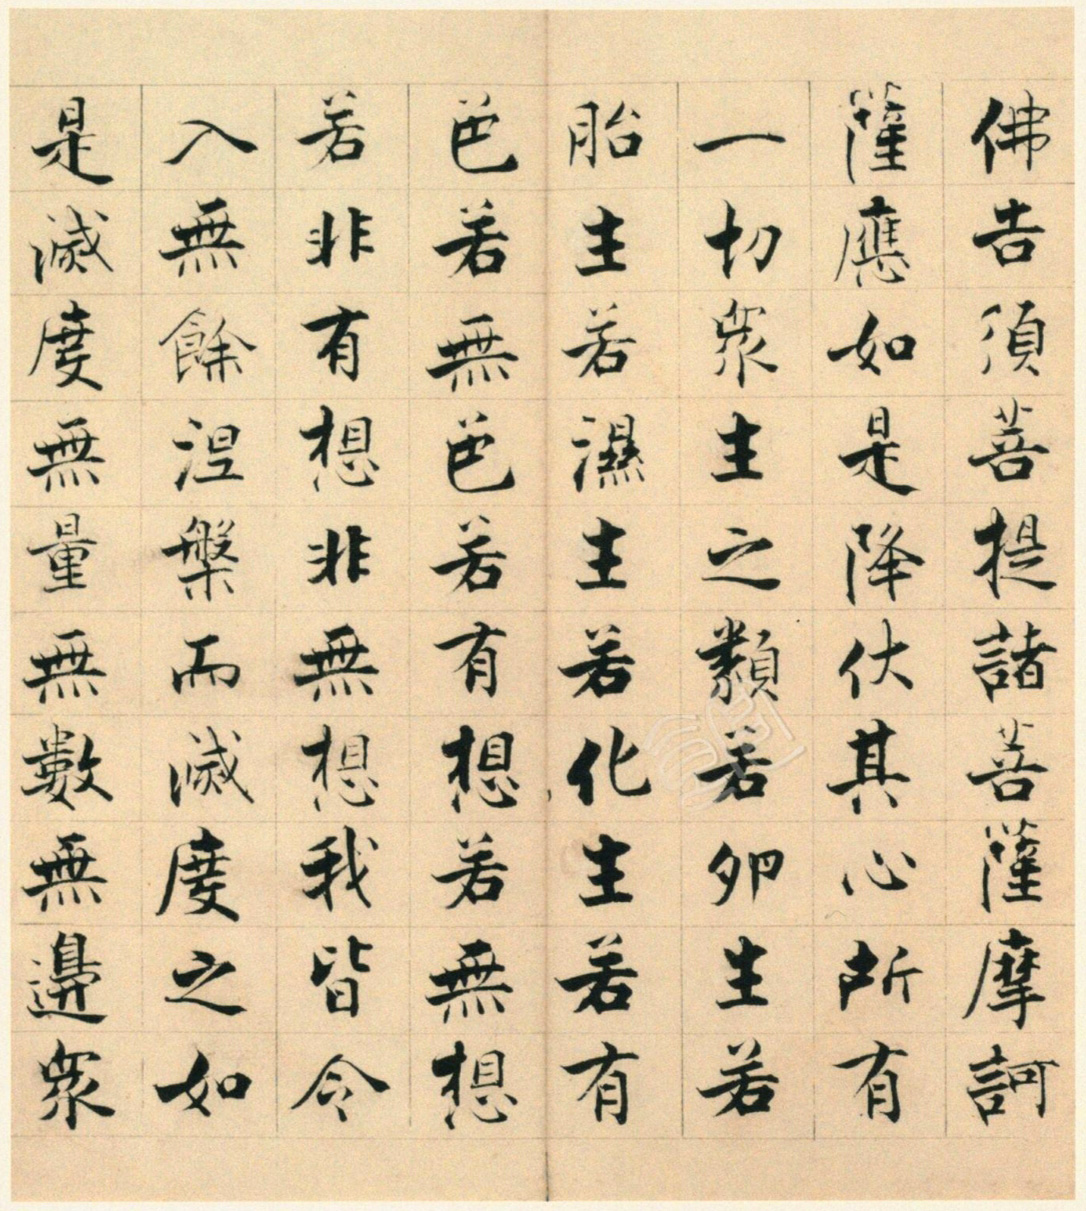 佛告須菩提諸菩薩摩訶
薩應如是降伏其心所有
一切衆生之類若卵生若
胎生若濕生若化生若有
色若無色若有想若無想
若非有想非無想我皆令
入無餘涅槃而滅度之如
是滅度無量無數無邊衆